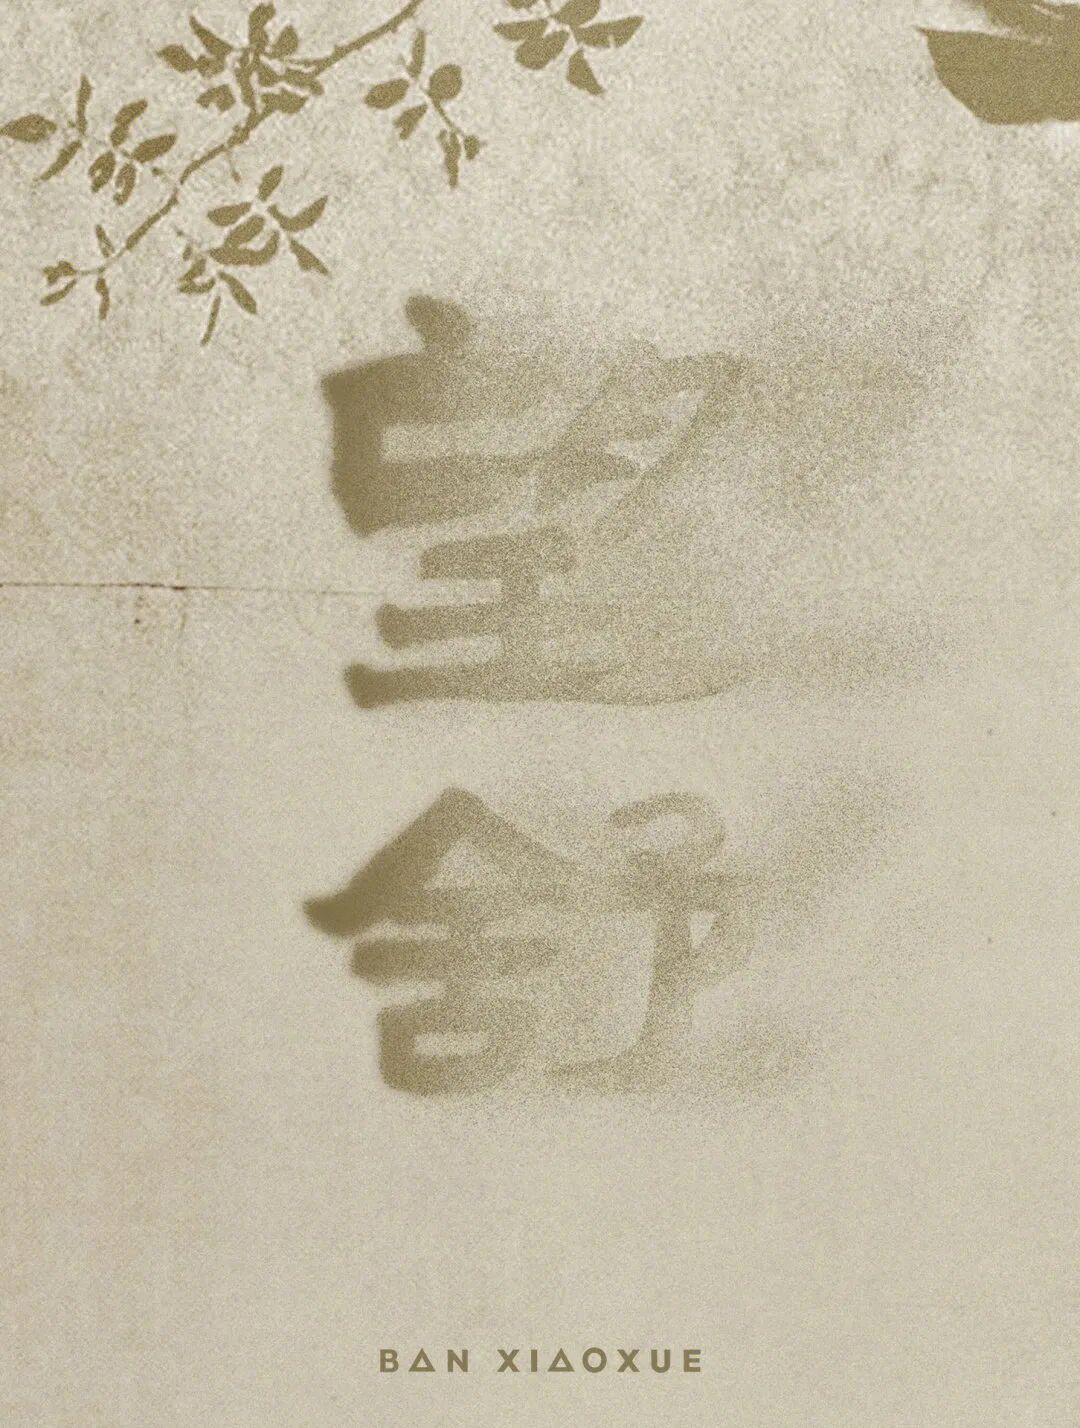 望
舒
BAN XIAOXUE